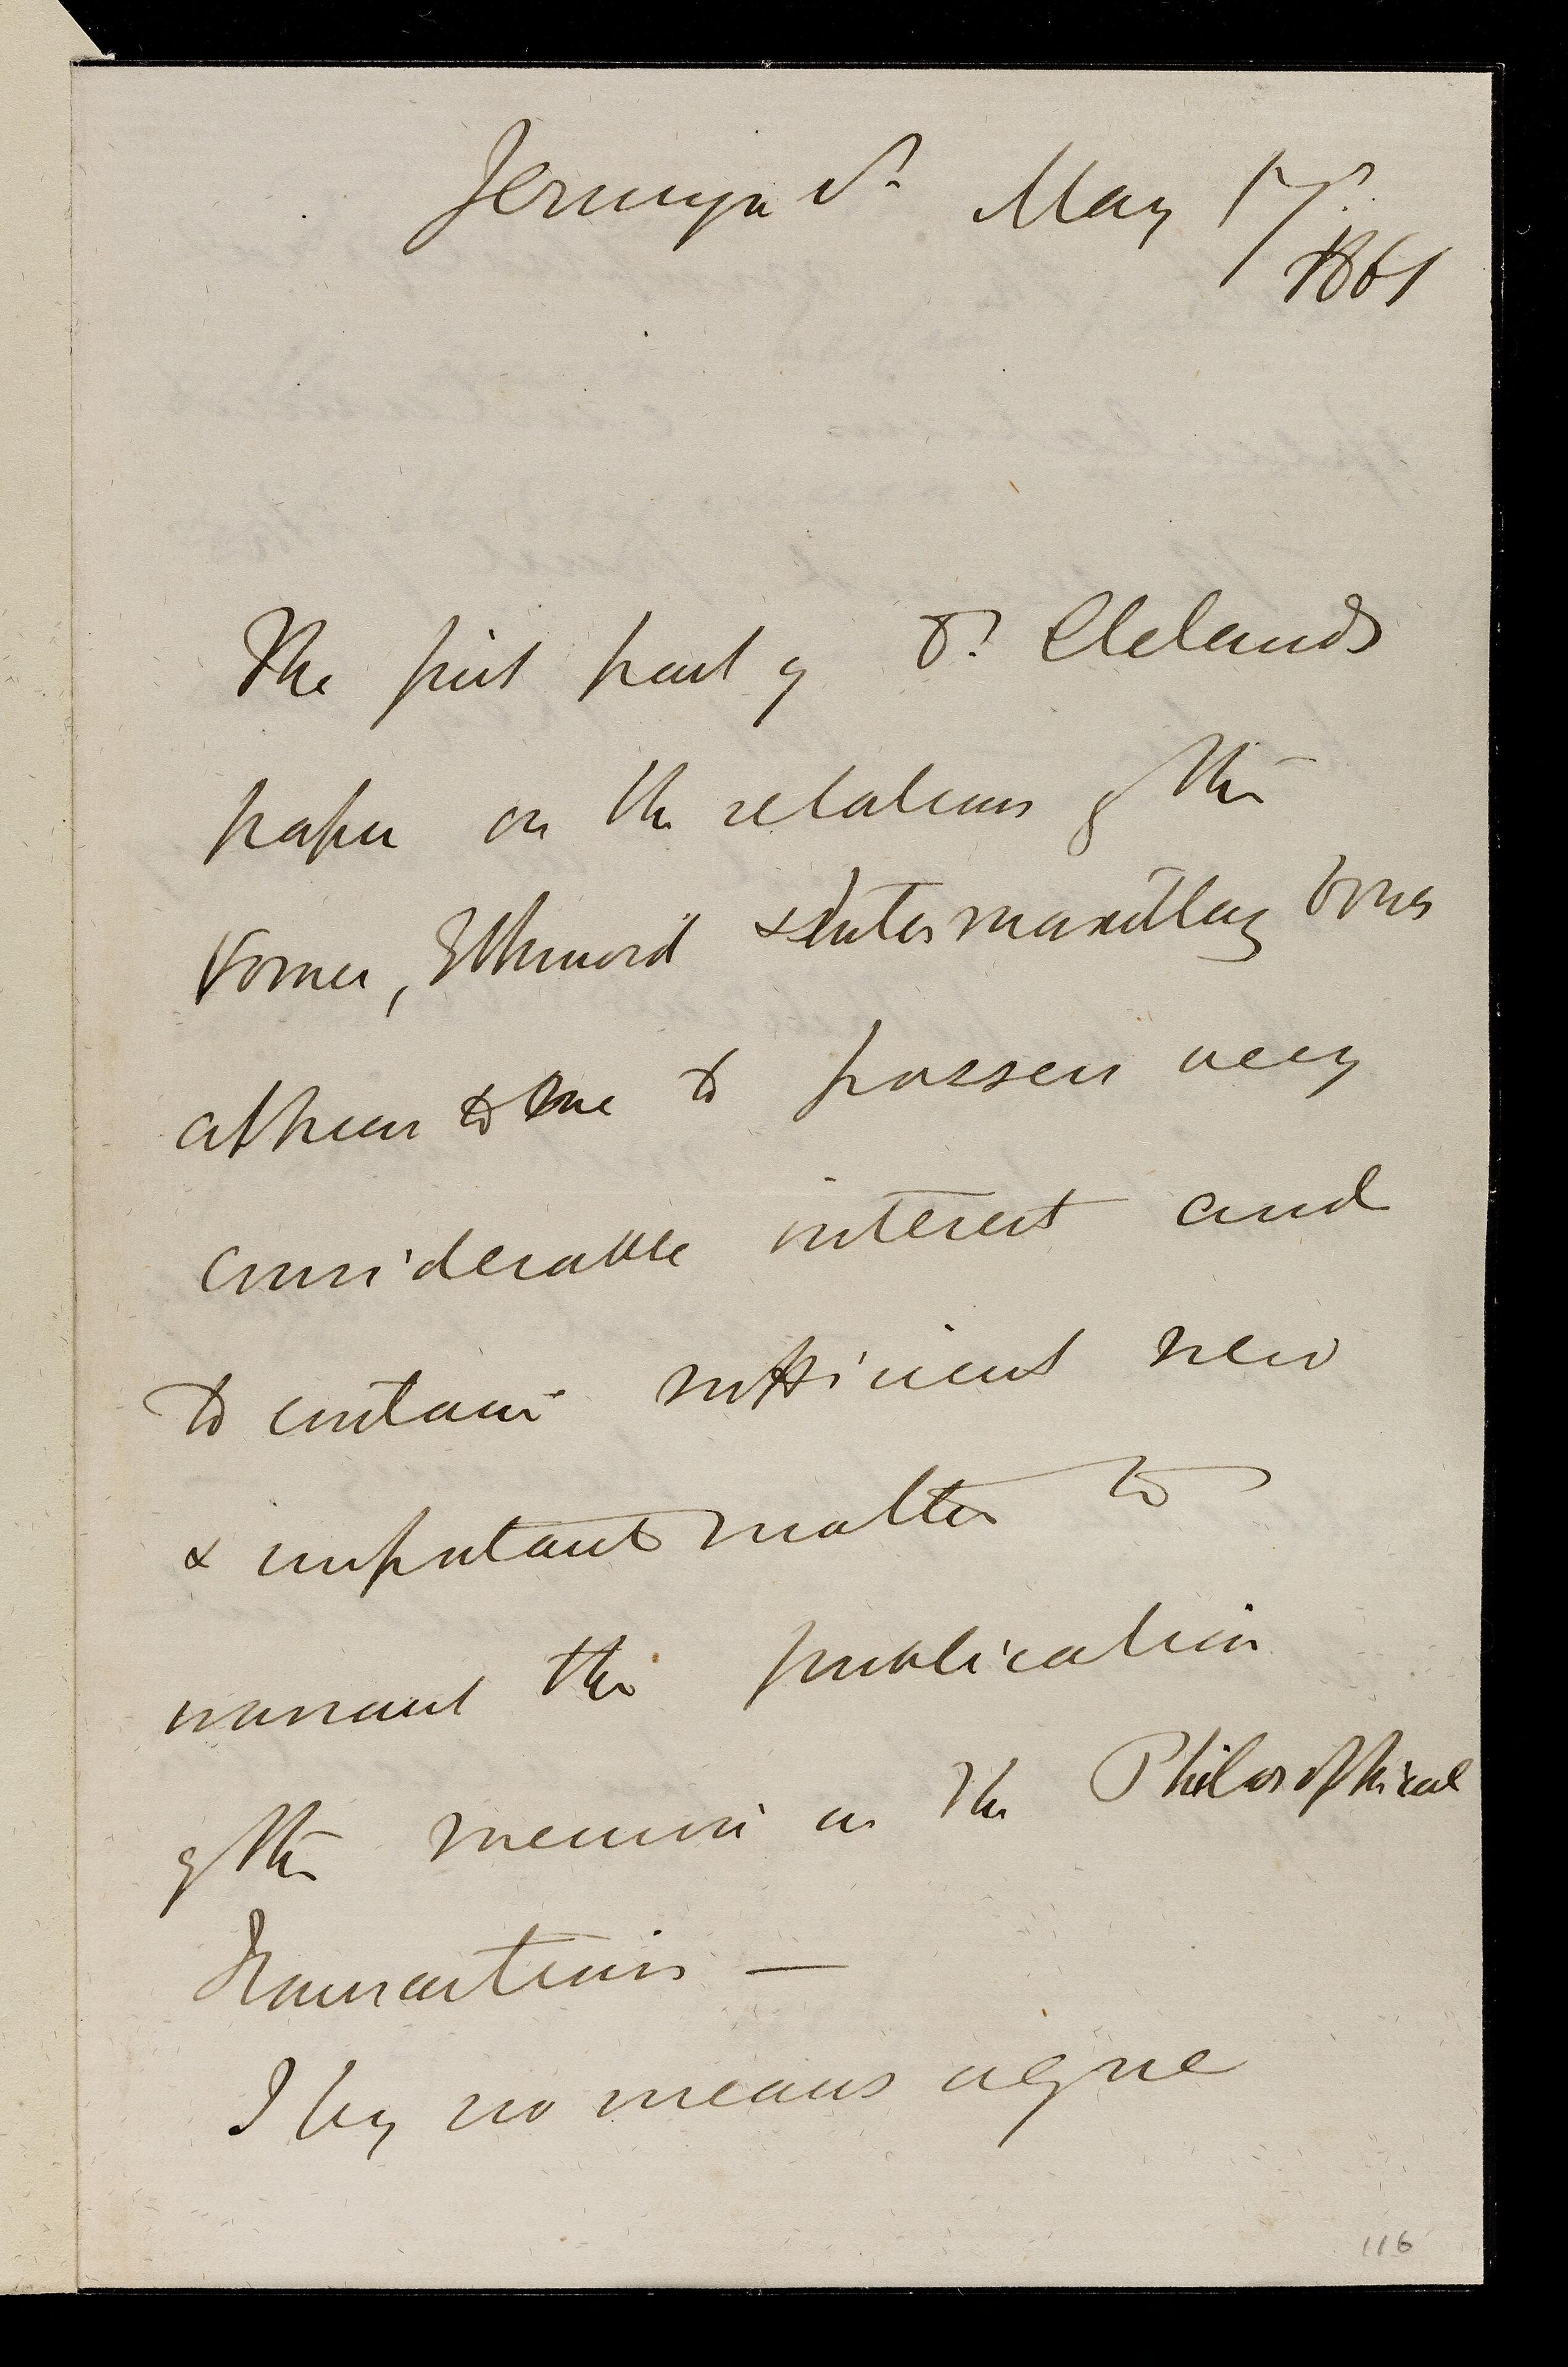 Jermyn St. May 17th.
1861
The first part of Dr. Clelands
paper on the relations of the
Vomer, Ethmoid & Intermaxillary bones
appears to me to possess very
considerable interest and
to contain sufficient new
& important matter to
warrant the publication
of the memoir in the Philosophical
Transactions —
I by no means agree
116